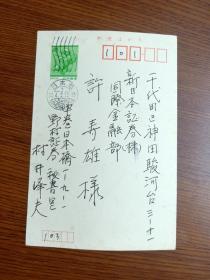 郵便はがき
101
千代田区神田駿河台三ー十一
新日本証券(株)
国際金融部
許寿雄様
中央区日本橋一ー九ー一
野村証券 秘書室
村井
夫
103